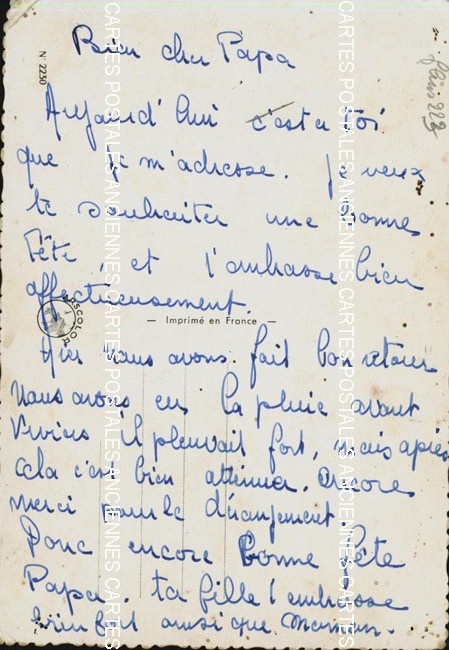 N° 2230
Bien cher Papa
Aujourd'hui c'est a toi
que je m'adresse. Je veux
te souhaiter une bonne
Fête, et t'embrasse bien
affectueusement.
— Imprimé en France —
Hier nous avons fait bon retour
Nous avons eu la pluie avant
Viviers il pleuvait fort, mais après
cela c'est bien atténué. Encore
merci pour le dérangement.
Donc encore bonne Fête
Papa. ta fille t'embrasse
bien fort ainsi que Maman.
CARTES POSTALES ANCIENNES CARTES POSTALES ANCIENNES CARTES
CARTES POSTALES ANCIENNES CARTES POSTALES ANCIENNES CARTES